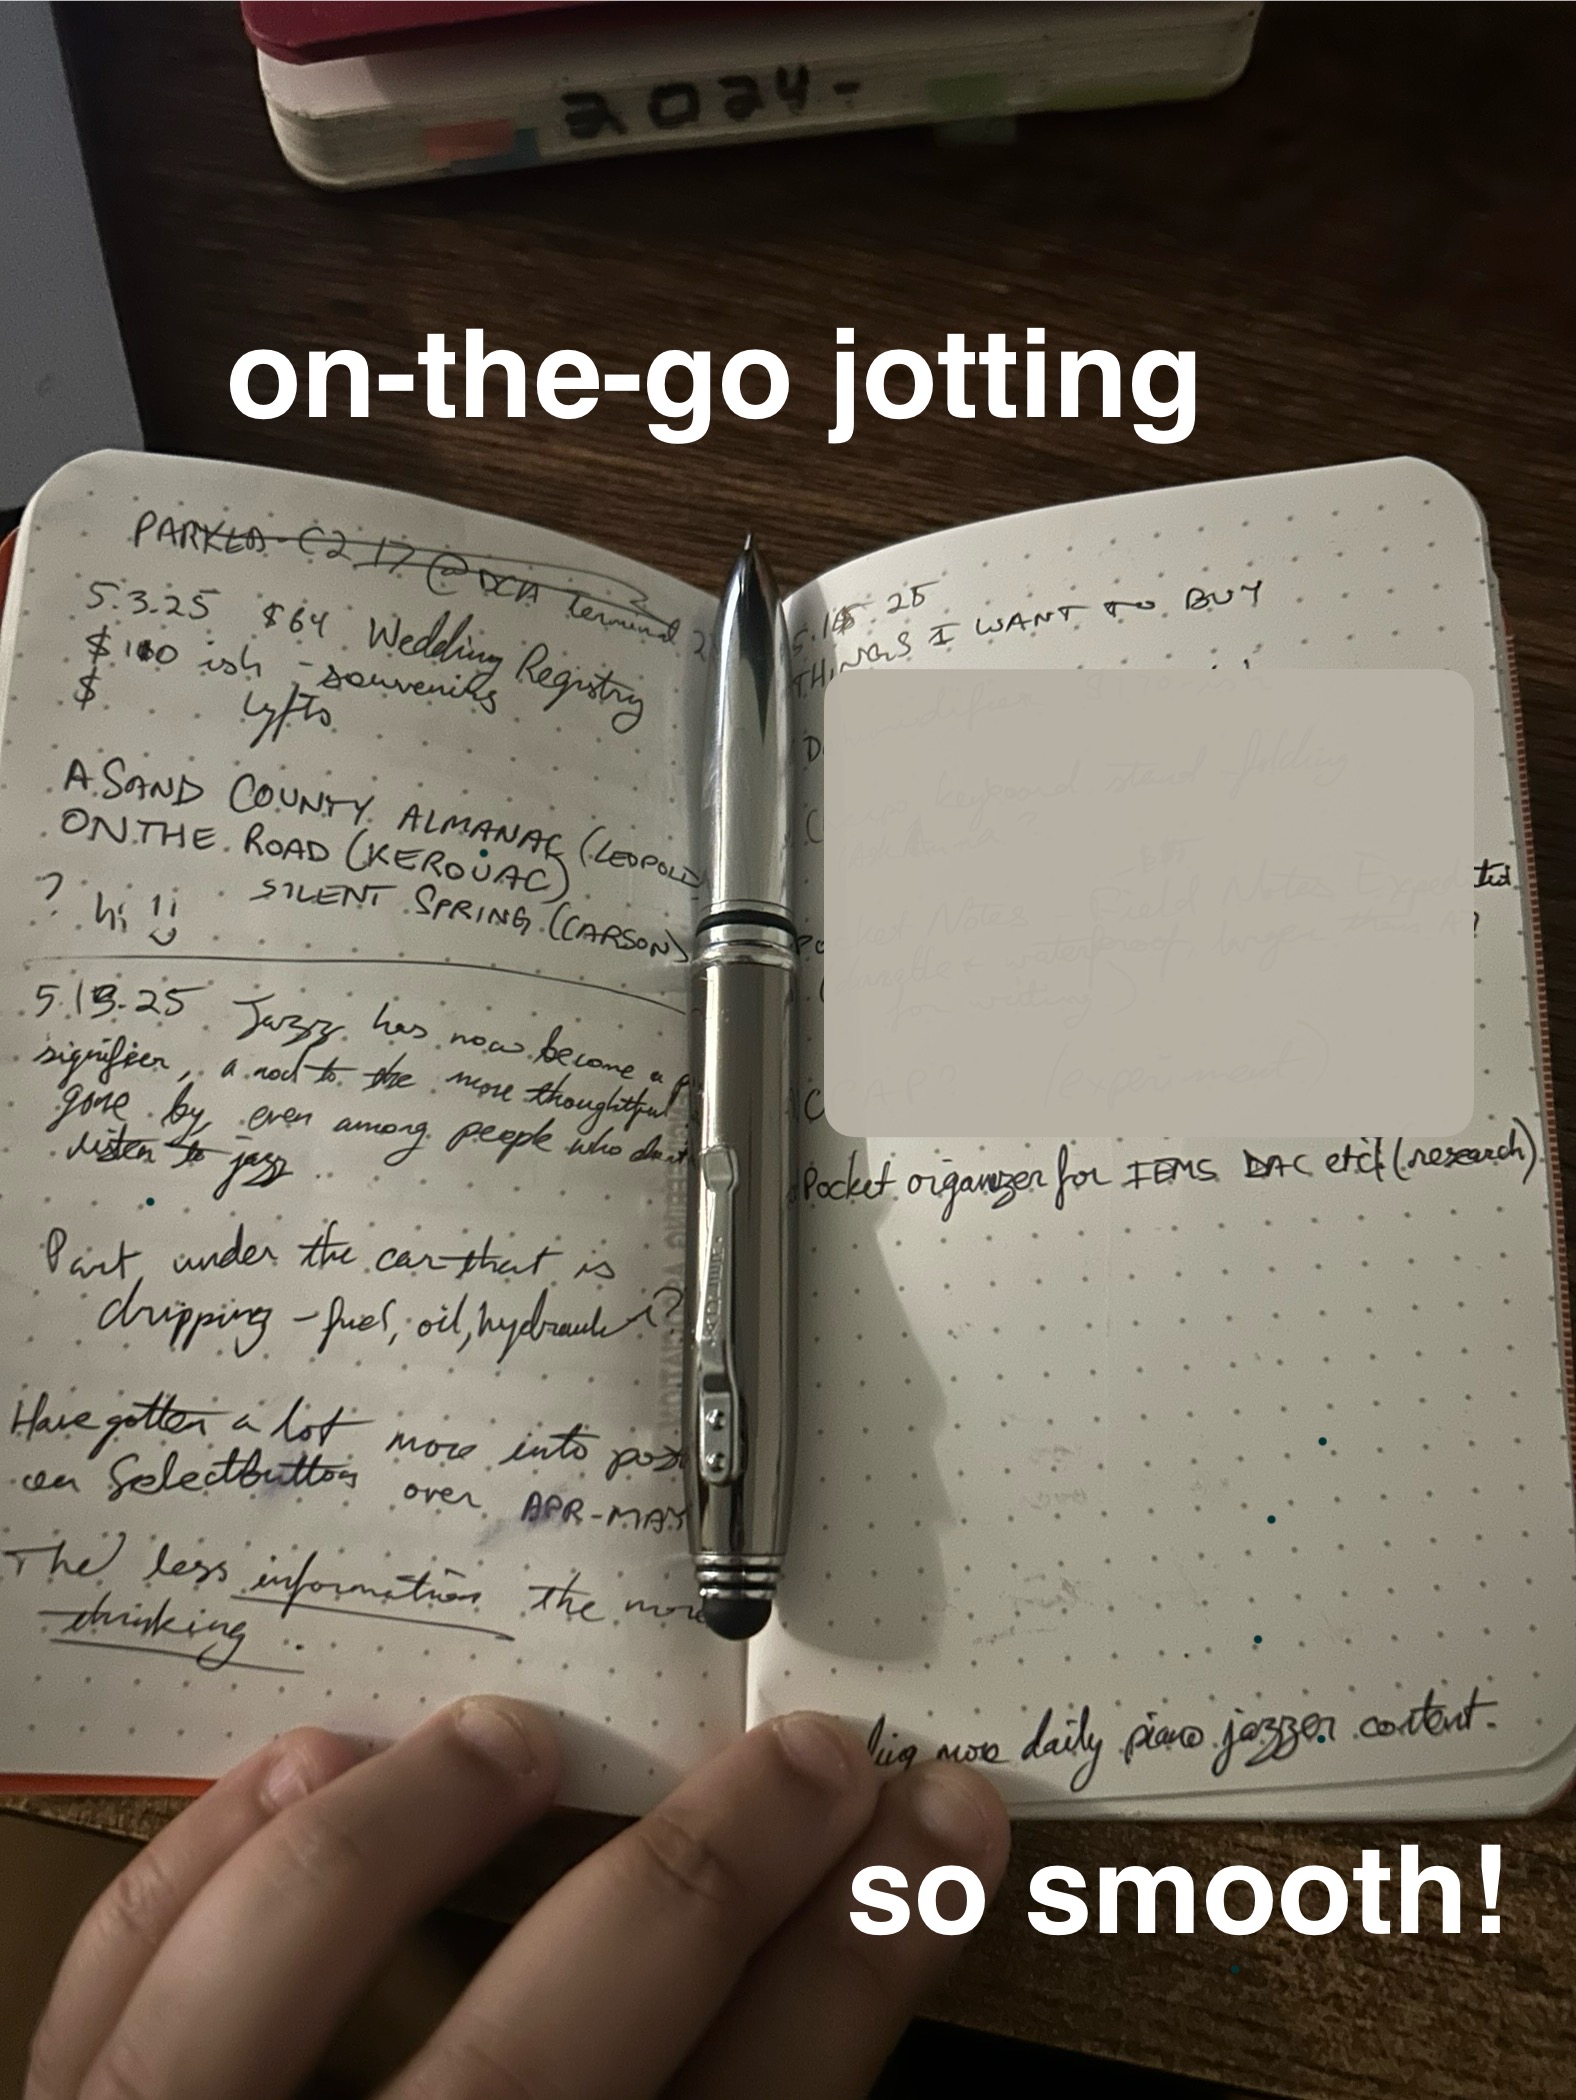 2024-
on-the-go jotting
PARKED - C2 17 @ DCA terminal 2
5.3.25 $64 Wedding Registry
$100 ish - souvenirs
$ Lyfts
A SAND COUNTY ALMANAC (LEOPOLD
ON THE ROAD (KEROUAC)
? hi !! SILENT SPRING (CARSON)
5.13.25 Jazz has now become a
signifier, a nod to the more thoughtful
gone by, even among people who don't
listen to jazz..
Part under the car that is
dripping - fuel, oil, hydraulic?
Have gotten a lot more into
on Selectbutton over APR-MAY
The less information the more
thinking..
5. 25
THINGS I WANT TO BUY
Pocket organizer for IEMS DAC etc! (research)
more daily piano jazzer content.
so smooth!